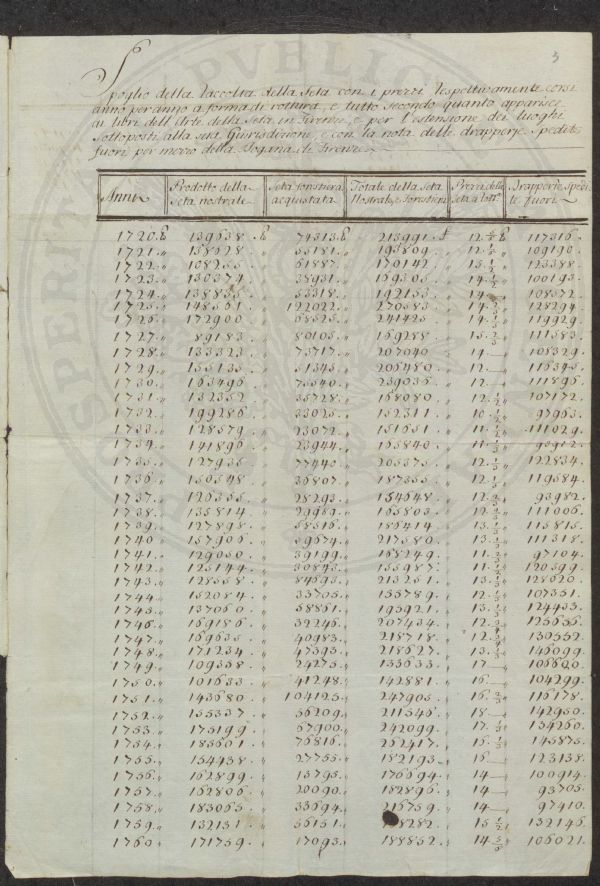 Spoglio della Raccolta della Seta con i prezzi respettivamente corsi
anno per anno a forma di rottura, e tutto secondo quanto apparisce
ai libri dell'Arte della Seta in Firenze, e per l'estensione dei luoghi
Sottoposti alla sua Giurisdizione, e con la nota delle drapperje Spedite
fuori per mezzo della Dogana di Firenze
3
Anni Prodotto della Seta nostrale Seta forestiera acquistata Totale della Seta Nostrale, e forestiera Prezzi della Seta a lott. Drapperie Spedite fuori
1720. 139678. 74313. 213991. 12. 117316.
1721. 138628. 55181. 193809. 12. 109190.
1722. 108255. 61887. 170142. 13. 123388.
1723. 130374. 38931. 169305. 14. 100193.
1724. 138835. 53318. 192153. 14. 108572.
1725. 148561. 122022. 270583. 14. 128294.
1726. 172900. 68525. 241425. 14. 119929.
1727. 89183. 80105. 169288. 15. 111583.
1728. 133323. 73717. 207040. 14 108329.
1729. 155135. 51345. 206480. 12. 116345.
1730. 163496. 75540. 239036. 12 111896.
1731. 132352. 35728. 168080. 12. 107172.
1732. 119286. 33025. 152311. 10. 97963.
1733. 128579. 23072. 151651. 11. 111029.
1734. 141896. 23944. 165840. 11. 95912.
1735. 127935. 77440. 205375. 12. 122834.
1736. 150548. 36807. 187355. 12. 119584.
1737. 126355. 28293. 154648. 12. 93982.
1738. 135814. 29989. 165803. 12. 111006.
1739. 127898. 58516. 186414. 13. 115815.
1740. 157906. 59674. 217580. 13. 111318.
1741. 129050. 39199. 168249. 11. 97104.
1742. 125144. 30843. 155987. 11. 120599.
1743. 128558. 84693. 213251. 13. 128620.
1744. 122084. 33705. 155789. 12. 107351.
1745. 137060. 58861. 195921. 13. 124433.
1746. 169186. 207434. 12. 125656.
1747. 40983. 218718. 12. 130552.
1748. 171234. 47393. 218627. 13. 146099.
1749. 109358. 24275. 133633. 17 106600.
1750. 101633. 41248. 142881. 16 104299.
1751. 143680. 104125. 247805. 16. 116178.
1752. 155337. 56209. 211546. 18 142950.
1753. 67900. 242099. 17. 134260.
1754. 185601. 76816. 262417. 15. 145875.
1755. 154438. 27755. 182193. 16 123138.
1756. 162899. 15795. 178694. 14 100914.
1757. 162806. 20090. 182896. 14 93705.
1758. 183065. 33694. 216759. 14 97410.
1759. 132131. 56151. 188282. 15. 132146.
1760. 171759. 17093. 188852. 14. 106021.